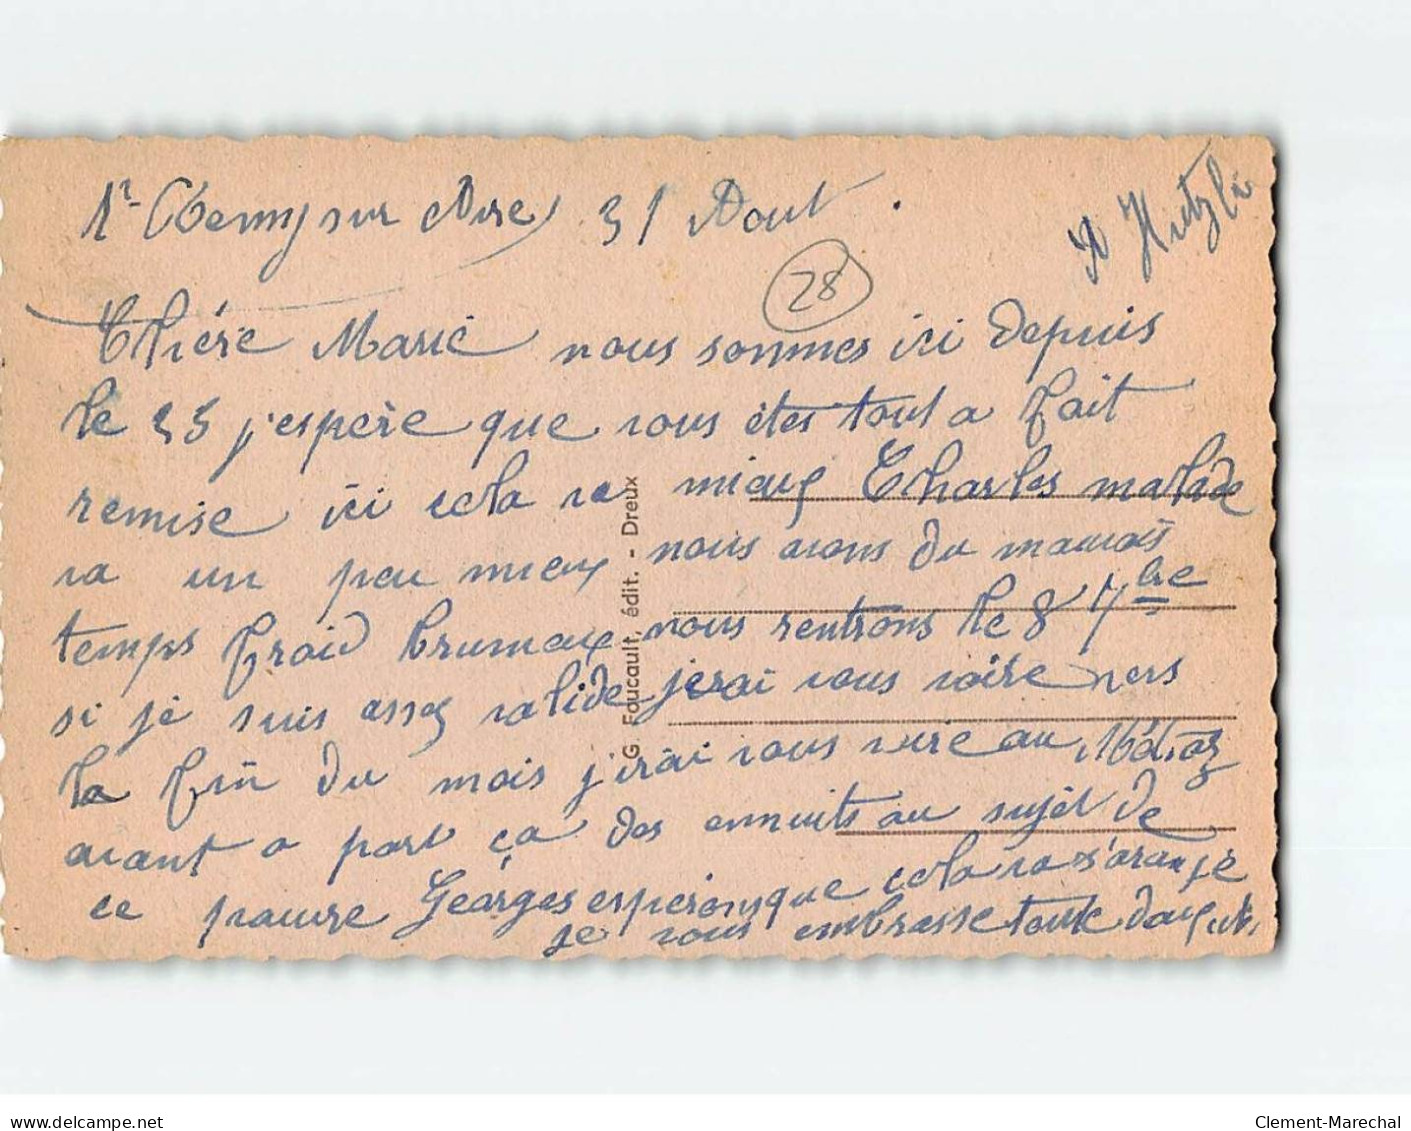 St Remy sur Avre 31 Aout
28
Chère Marie nous sommes ici depuis
le 25 j'espère que vous êtes tout a fait
remise ici cela va mieux Charles malade
va un peu mieux nous avons du mauvais
temps froid brumeux nous rentrons le 8 7bre
si je suis assez valide jerai vous voire vers
la fin du mois j'irai vous voire au
avant a part ça des ennuits au sujet de
ce pauvre Georges esperons que cela va s'arangé
je vous embrasse toute
G. Foucault, édit. - Dreux
delcampe.net
Clement-Marechal